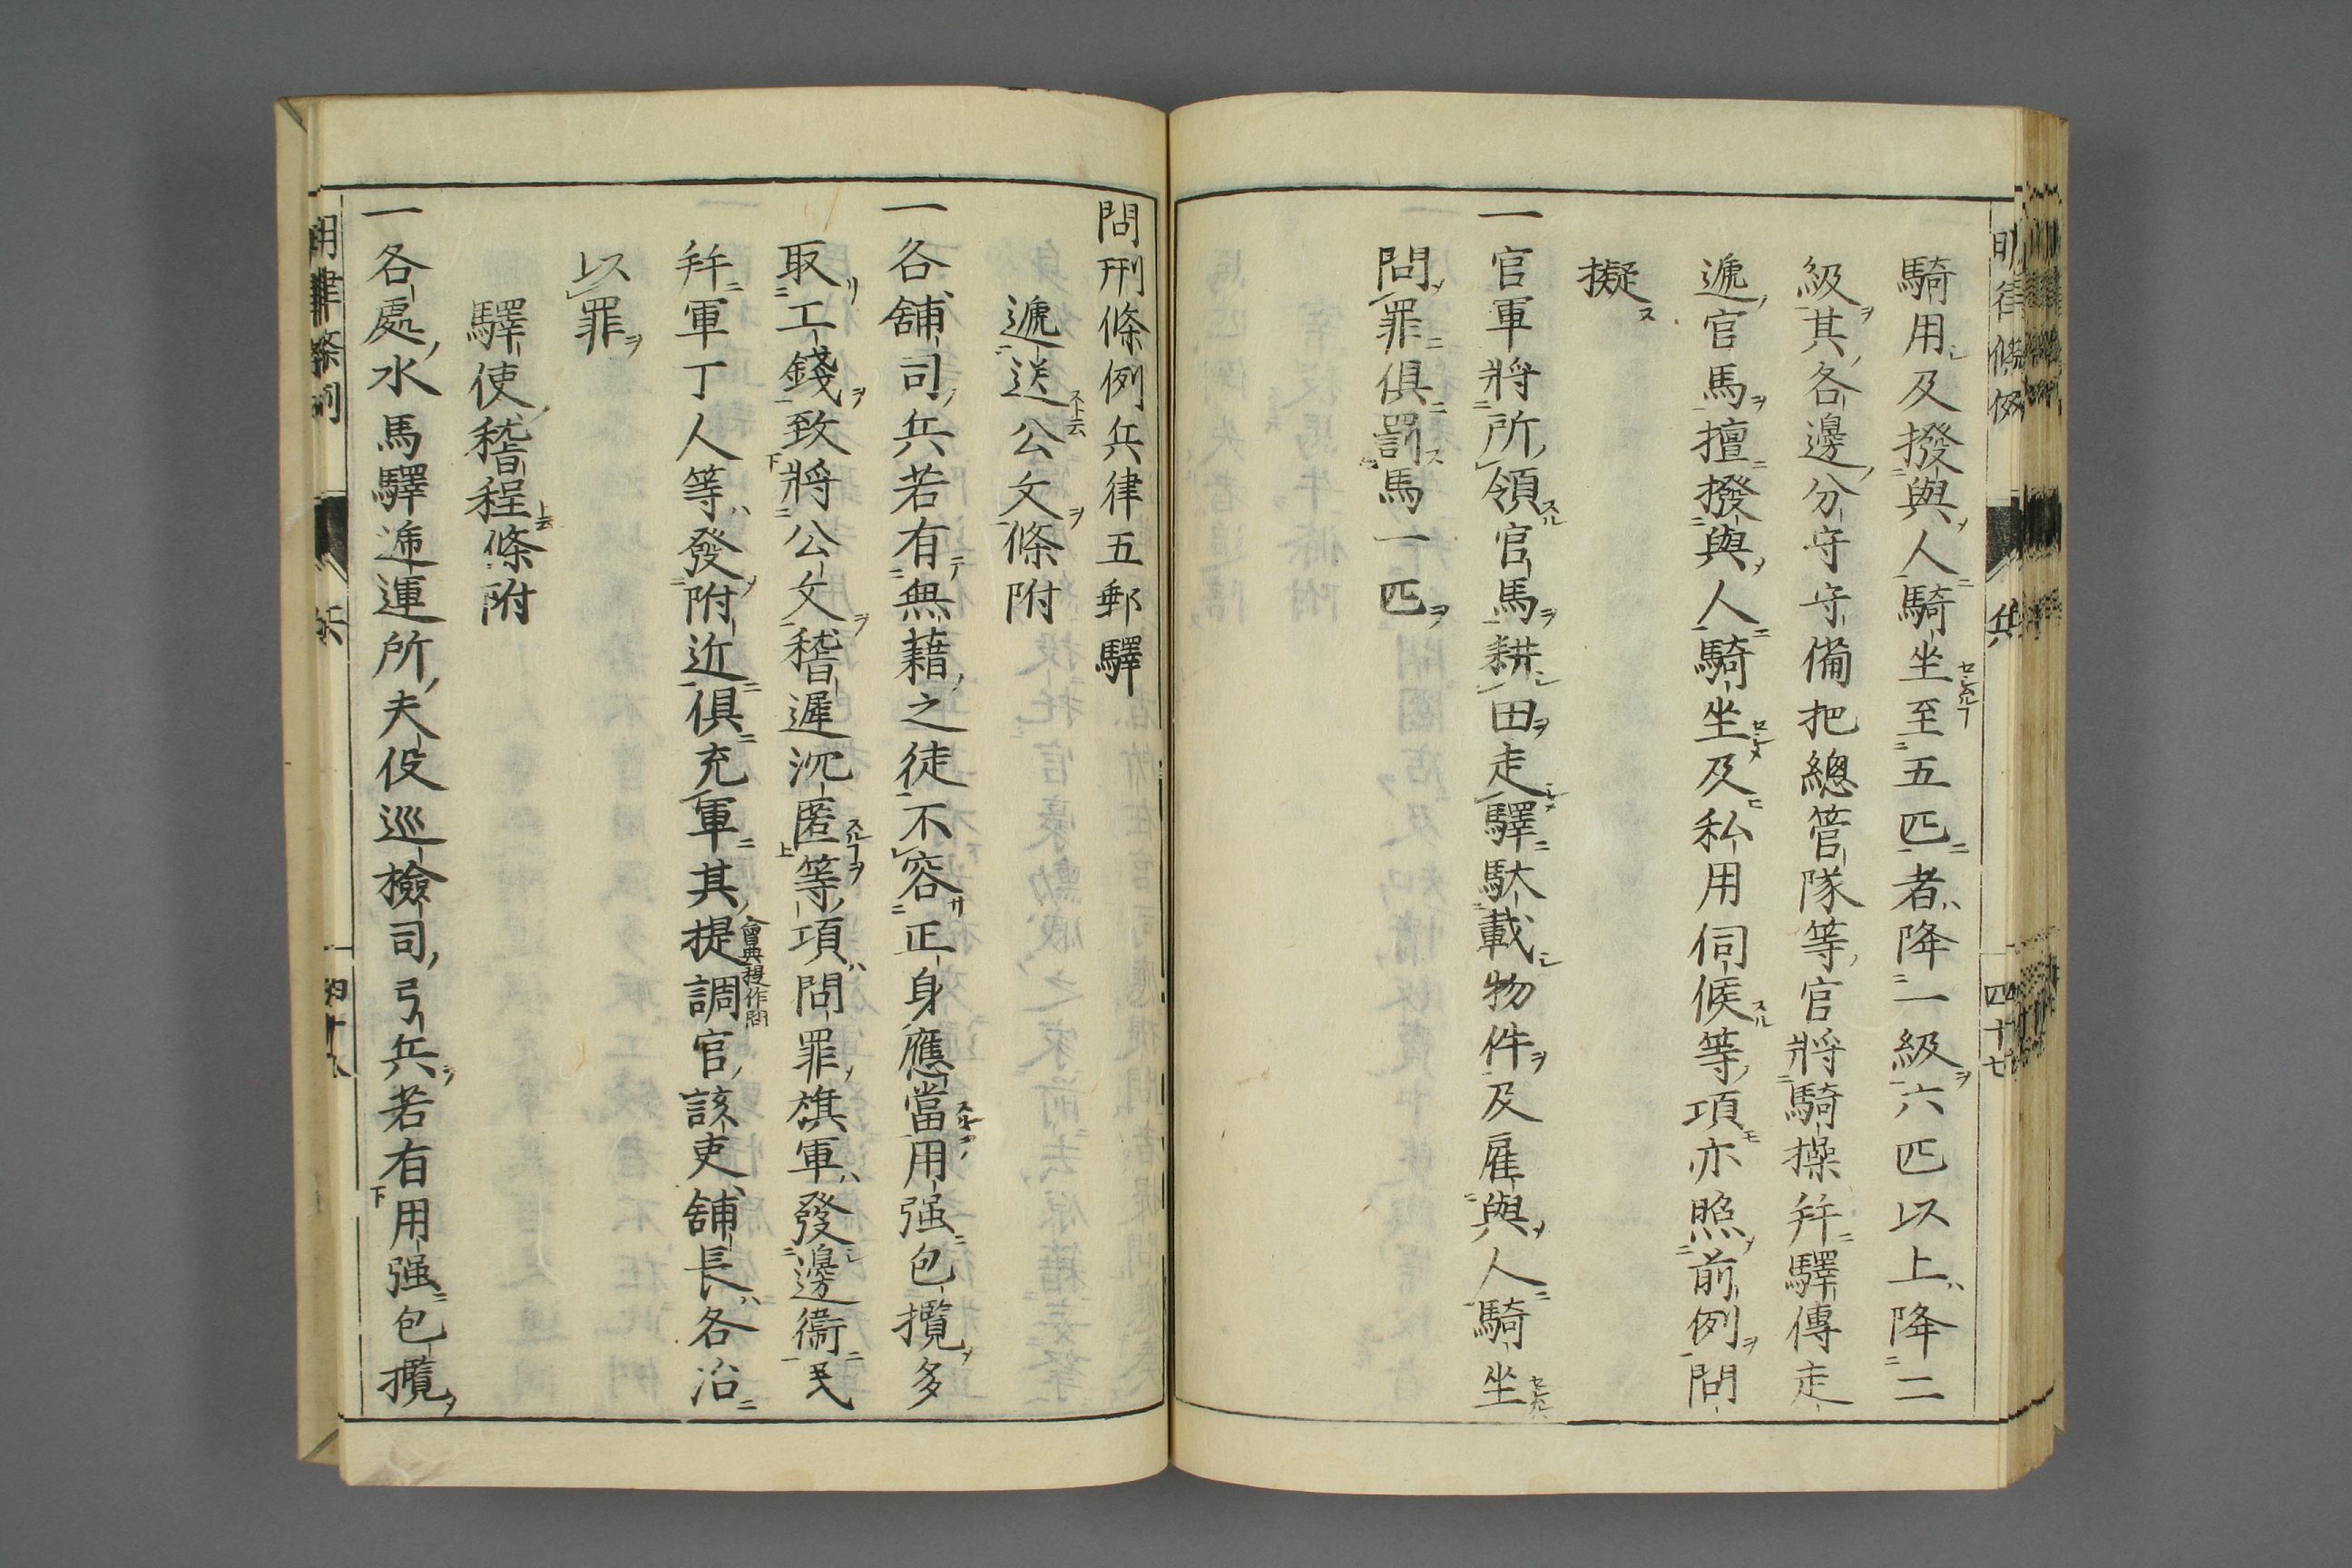 騎用及撥與人騎坐至五匹者降一級六匹以上降二
級其各邊分守守備把總管隊等官將騎操并驛傳走
遞官馬擅撥與人騎坐及私用伺候等項亦照前例問
擬
一官軍將所領官馬耕田走驛馱載物件及雇與人騎坐
問罪俱罰馬一匹
問刑條例兵律五郵驛
遞送公文條附
一各舖司兵若有無藉之徒不容正身應當用强包攬多
取工錢致將公文稽遲沉匿等項問罪旗軍發邊衞民
并軍丁人等發附近俱充軍其提調官該吏舖長各治
會典提作問
以罪
驛使稽程條附
一各處水馬驛遞運所夫役巡檢司弓兵若有用强包攬
明律條例 兵 四十七